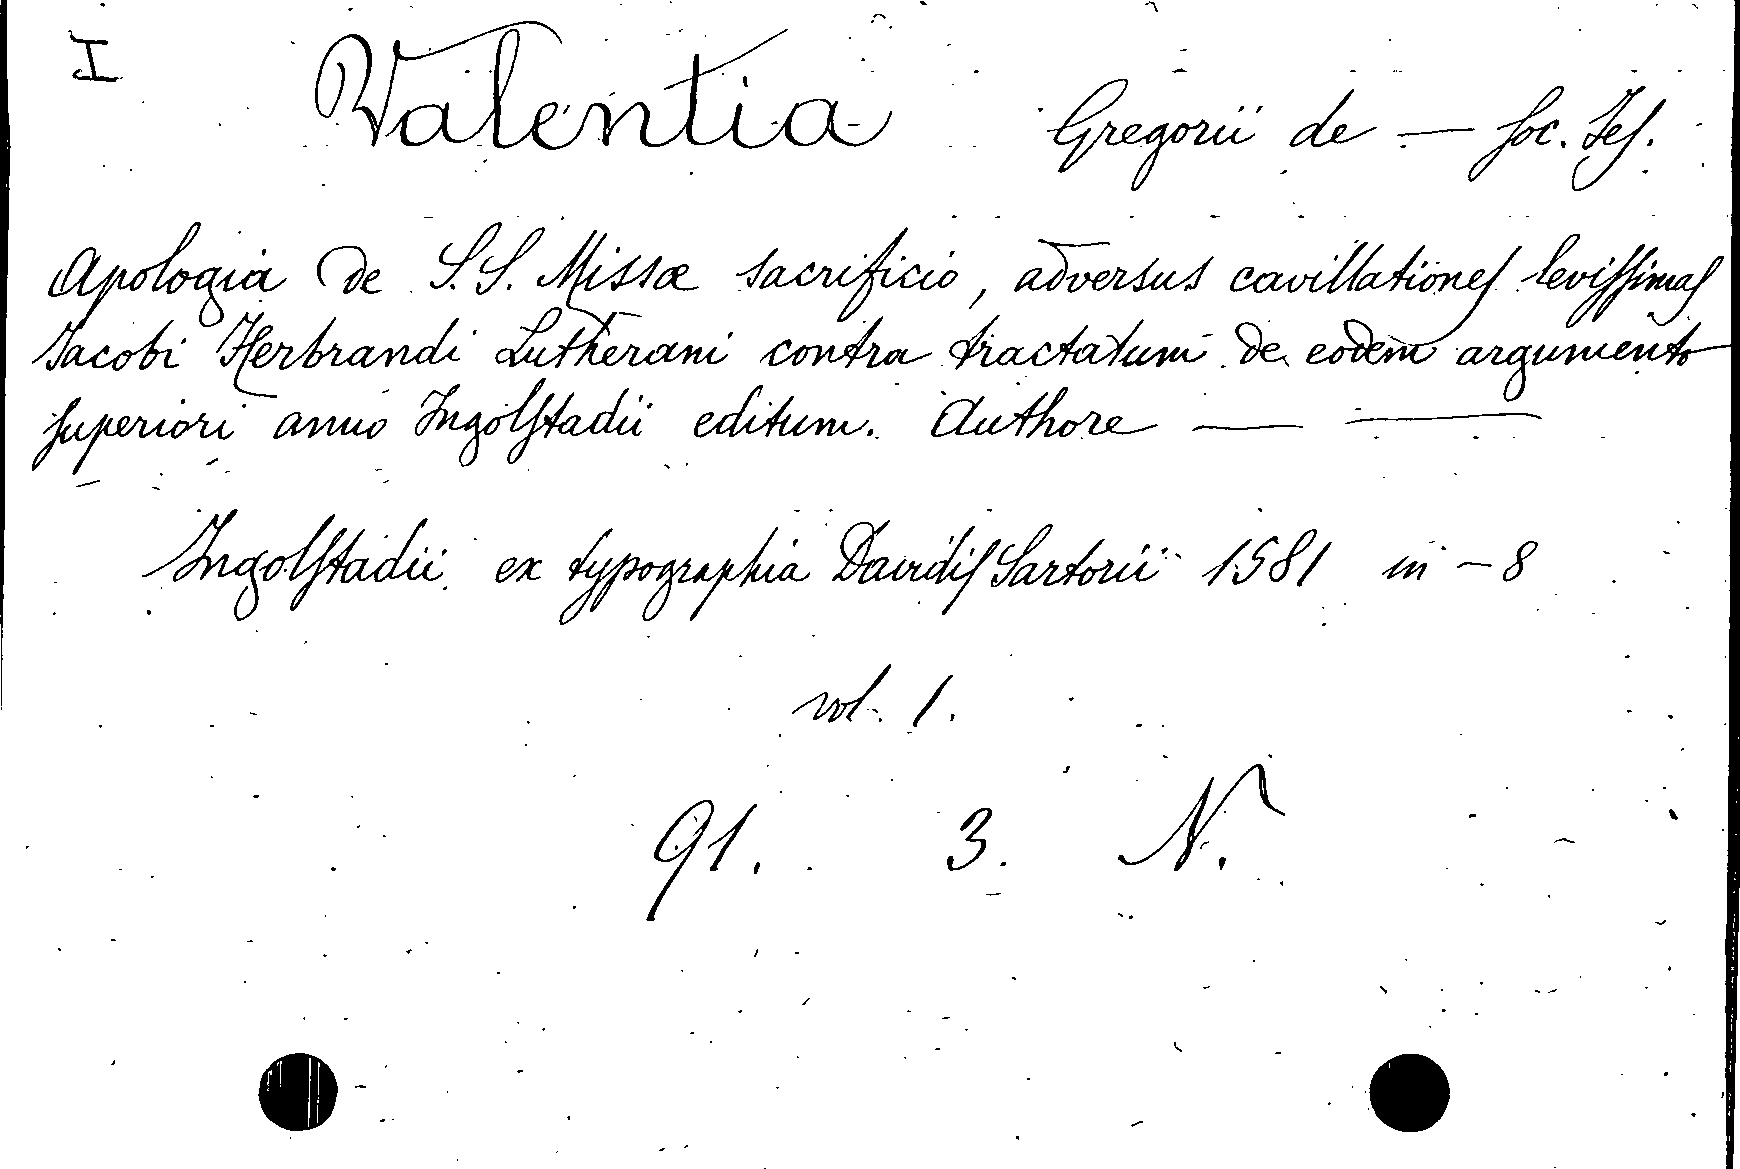 I
Valentia Gregorii de — Soc. Jes.
Apologia de S.S. Missæ sacrificio, adversus cavillationes levissimas
Jacobi Herbrandi Lutherani contra tractatum de eodem argumento
superiori anno Ingolstadii editum. Authore — —
Ingolstadii ex typographia Davidis Sartorii 1581 in-8
vol. 1.
91. 3. N.